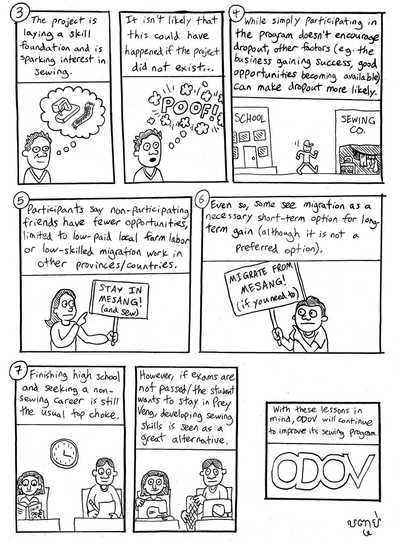 3
The project is
laying a skill
foundation and is
sparking interest in
sewing.
It isn't likely that
this could have
happened if the project
did not exist...
POOF!
4
While simply participating in
the program doesn't encourage
dropout, other factors (eg. the
business gaining success, good
opportunities becoming available)
can make dropout more likely.
SCHOOL
SEWING
CO.
5
Participants say non-participating
friends have fewer opportunities,
limited to low-paid local farm labor
or low-skilled migration work in
other provinces/countries.
STAY IN
MESANG!
(and sew)
6
Even so, some see migration as a
necessary short-term option for long-
term gain (although it is not a
preferred option).
MIGRATE FROM
MESANG!
(if you need to)
7
Finishing high school
and seeking a non-
sewing career is still
the usual top choice.
However, if exams are
not passed/the student
wants to stay in Prey
Veng, developing sewing
skills is seen as a
great alternative.
With these lessons in
mind, ODOV will continue
to improve its sewing program.
ODOV